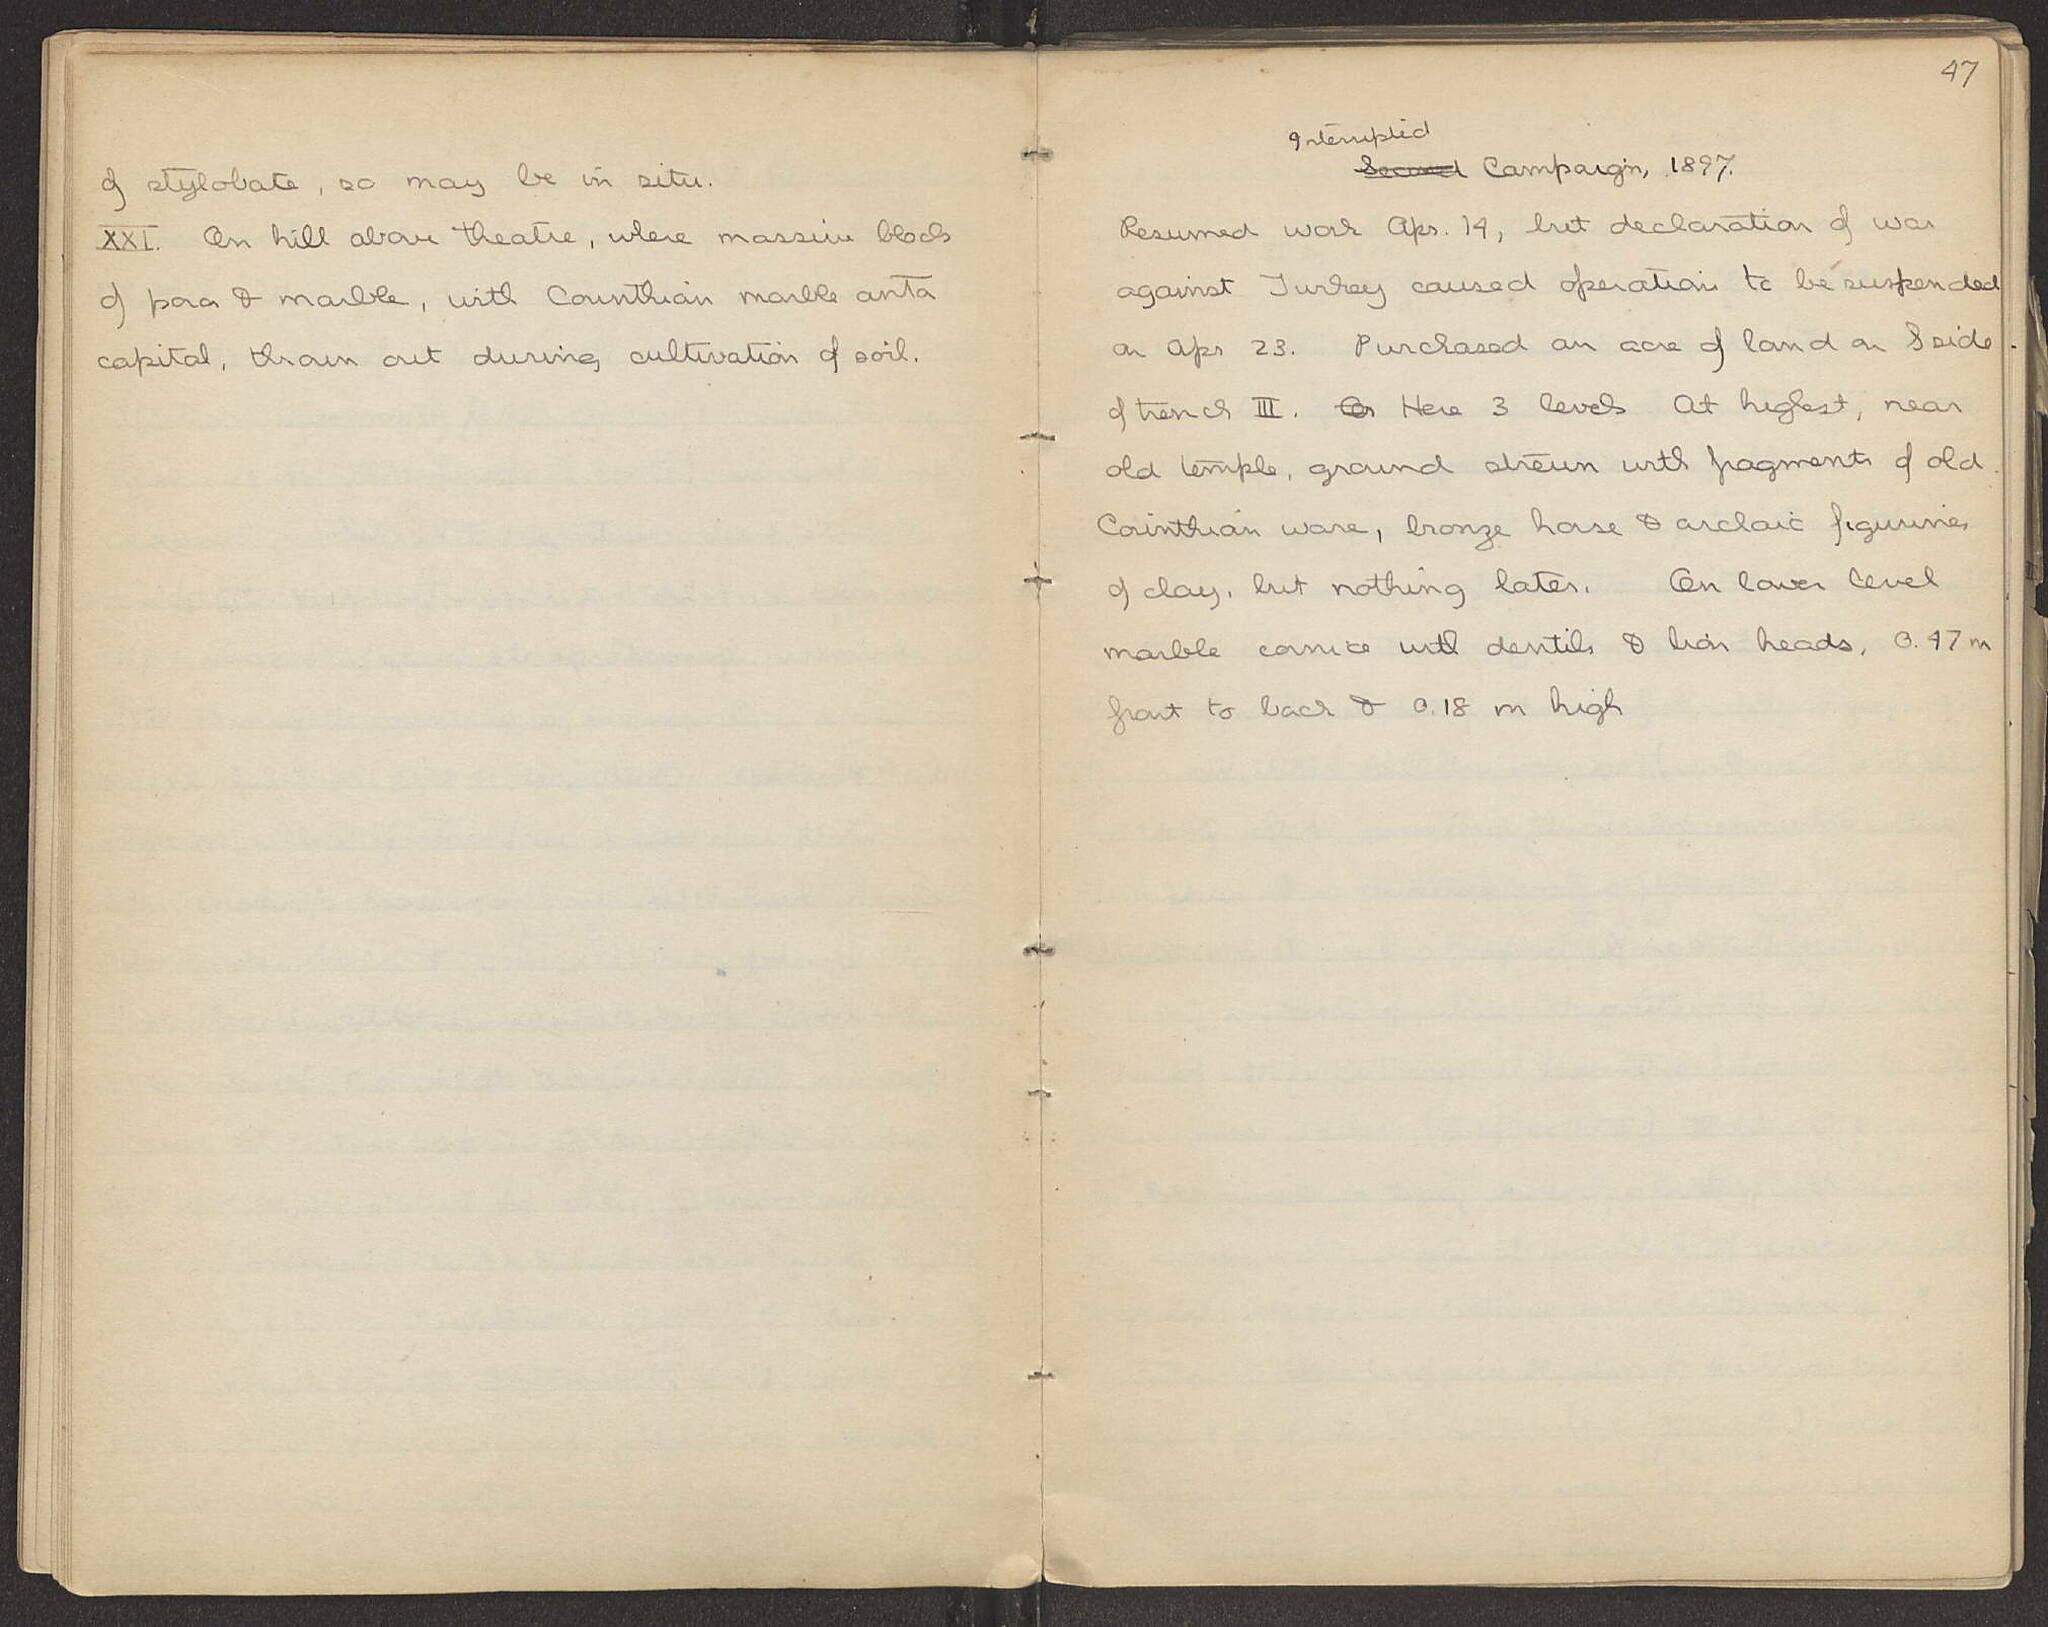 of stylobate, so may be in situ.
XXI. On hill above theatre, where massive blocks
of poros & marble, with Corinthian marble anta
capital, thrown out during cultivation of soil.
47
Interrupted
Second Campaign, 1897.
Resumed work Apr. 14, but declaration of war
against Turkey caused operations to be suspended
on Apr 23. Purchased an acre of land on S side
of trench III. Here 3 levels At highest, near
old temple, ground strewn with fragments of old
Corinthian ware, bronze horse & archaic figurines
of clay, but nothing later. On lower level
marble cornice with dentils & lion heads, 0.47 m
front to back & 0.18 m high